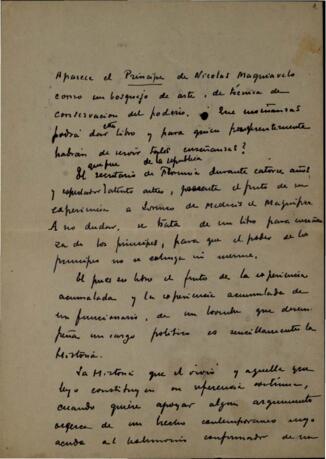 1
Aparece el Príncipe de Nicolas Maquiavelo
como un bosquejo de arte, de técnica de
conservación del poderío. ¿Que enseñanzas
podrá dar este libro y para quien preferentemente
habrán de servir tales enseñanzas?
El que fue secretario de la república de Florencia durante catorce años
y espectador antes, presenta el fruto de su
experiencia a Lorenzo de Médicis el Magnífico
A no dudar, se trata de un libro para enseñanza
de los príncipes, para que el poder de los
príncipes no se extinga ni merme.
Es pues su libro el fruto de la experiencia
acumulada y la experiencia acumulada de
un funcionario, de un hombre que desempeña
un cargo político es sencillamente la
Historia.
La Historia que el vivió y aquella que
leyó constituyen su referencia continua,
cuando quiere apoyar algun argumento
acerca de un hecho contemporaneo suyo
acude al testimonio confirmador de un